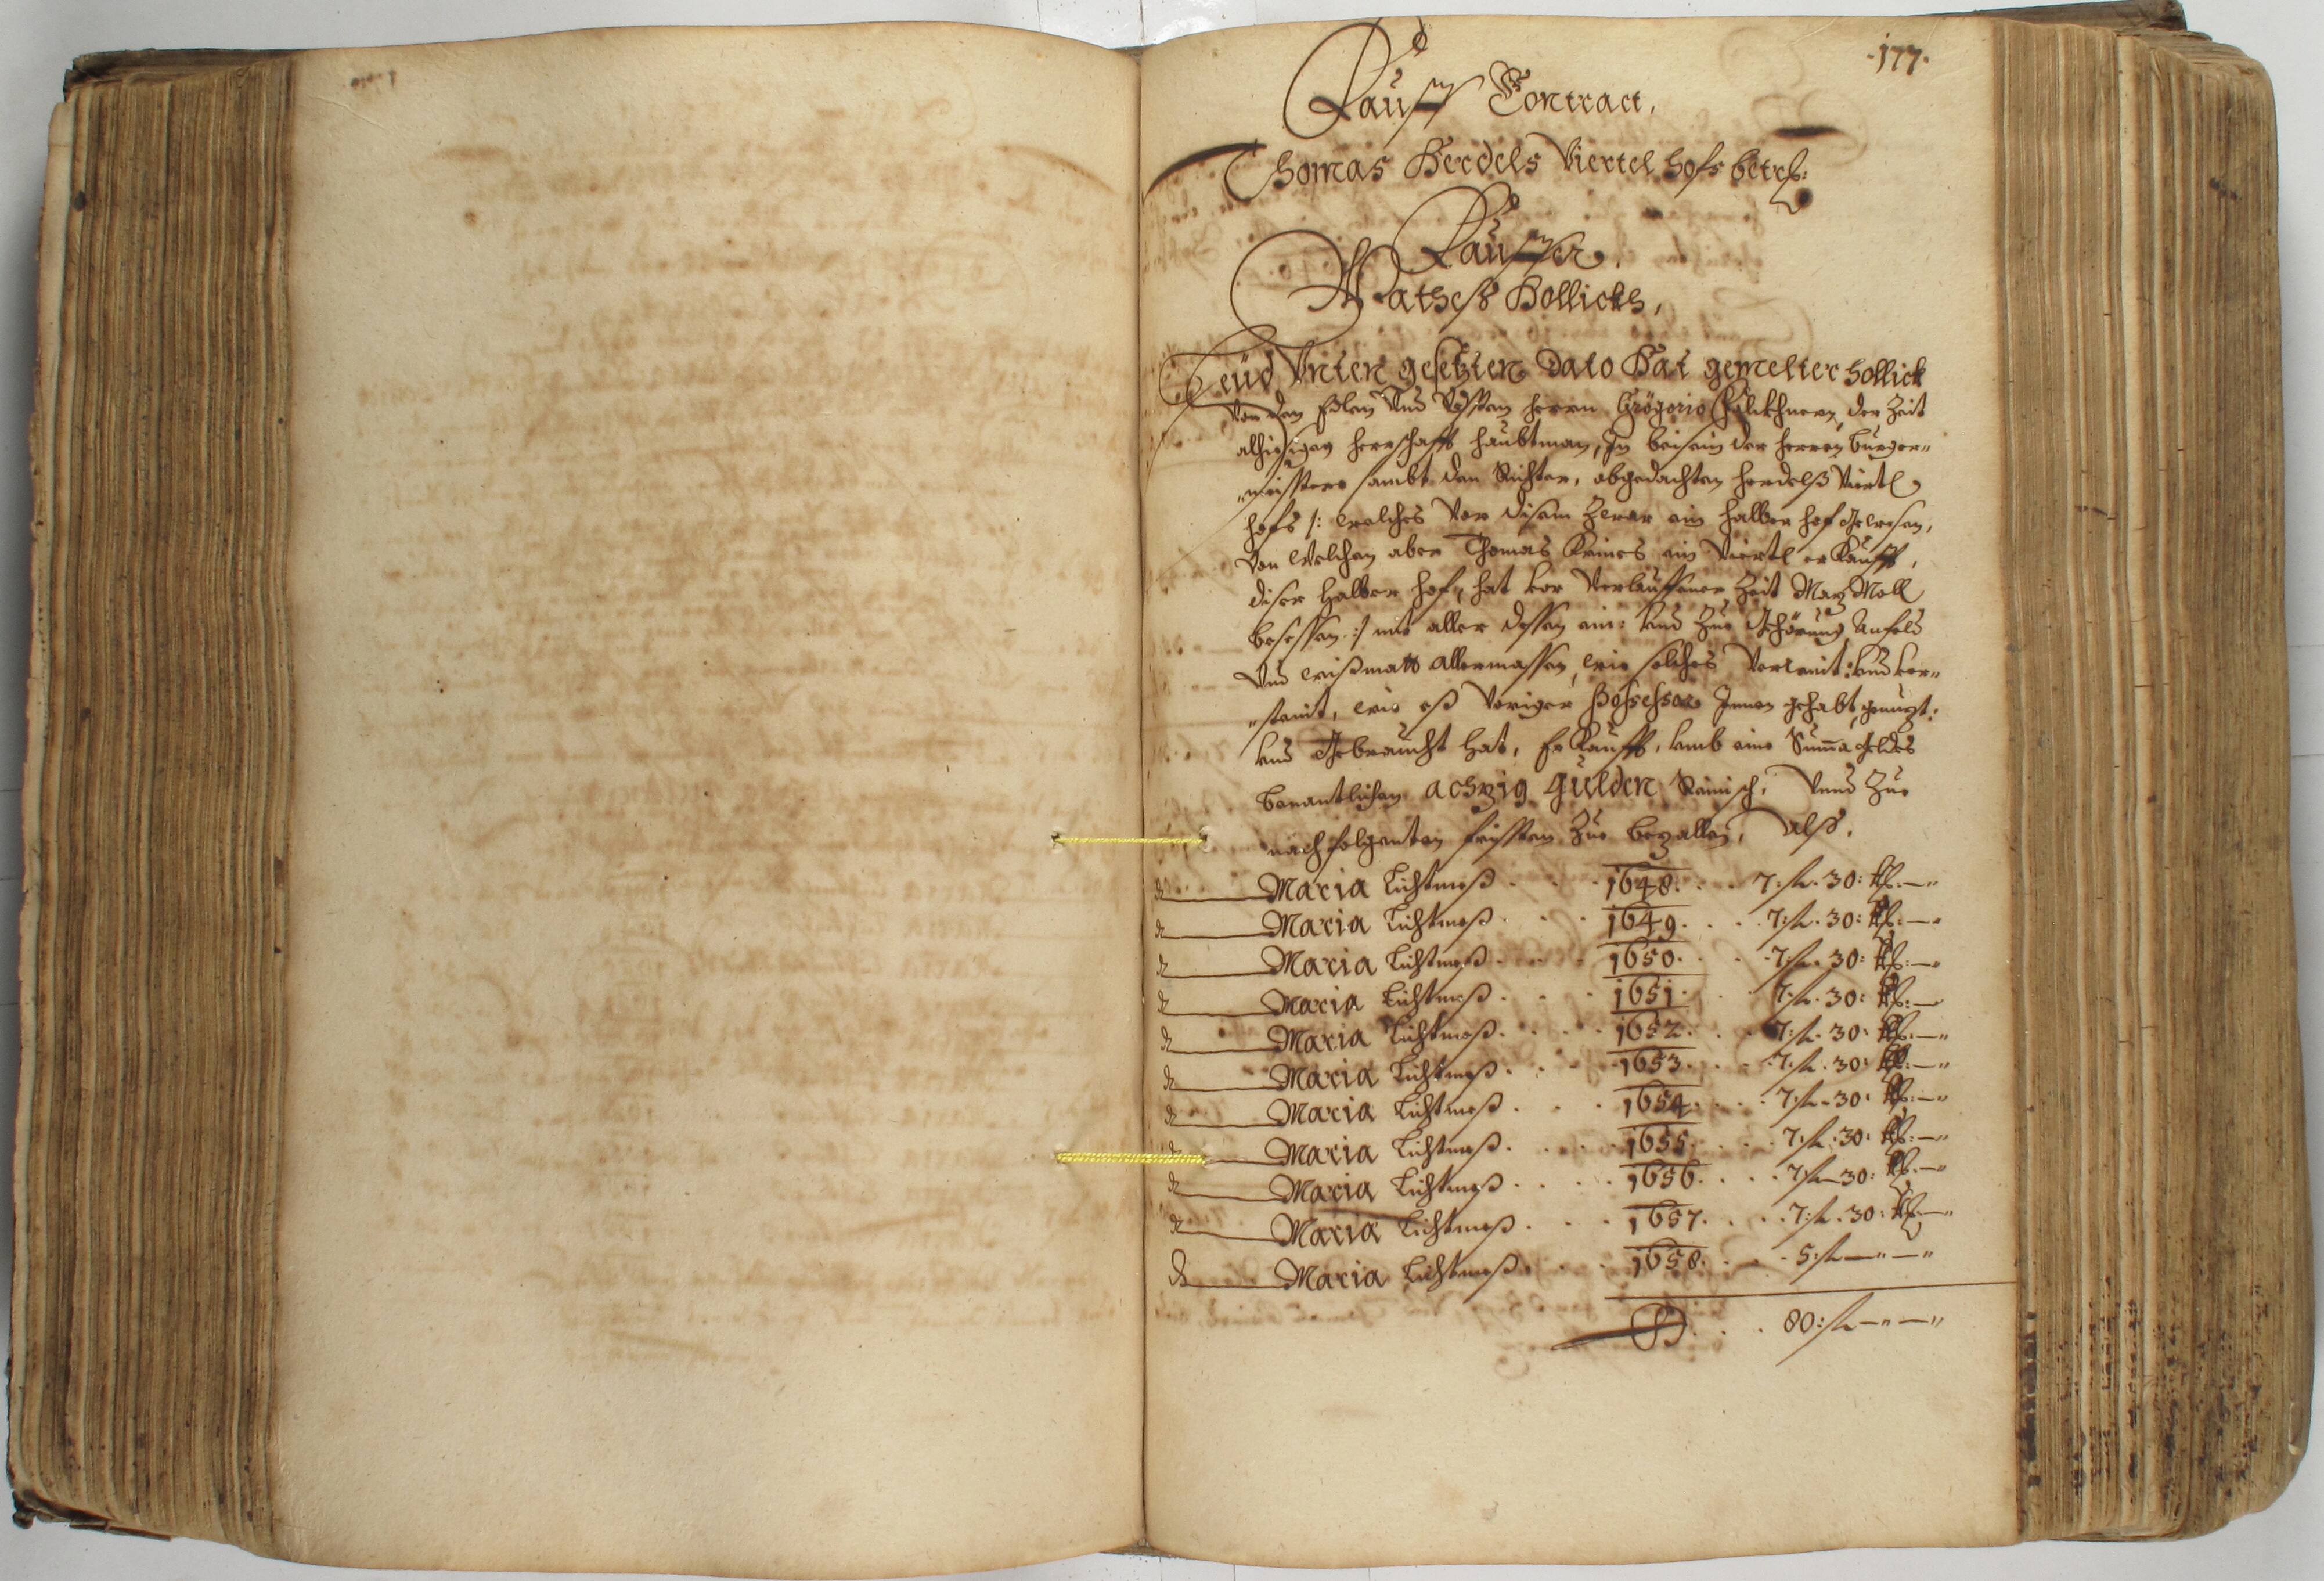 .177.
Kauff Contract,
Thomas Herdels Viertel hofs betrf:
Kauffer,
Matheß Hollickh,
Heüd Vnten gesetzten Dato Hat gemelter Hollick
Von dem Edlen Vnd Vesten herrn Grögorio der Zeit
alhiesigen herrschafft haubtman, In beisein der herren burger=
=meistere sambt dem Richter, obgedachten herdelß Viertl
hofs /: welches Vor disem Zwar ein halber hof gewesen,
Von Welchem aber Thomas ein Viertl erkaufft,
diser halber hof, hat vor Verlauffener Zeit Moll
besessen :/ mit aller dessen ein: vnd Zue gehörung Anfeld
Vnd wißmatt allermassen, wie solches Verraint: vnd ver=
=staint, wie eß Voriger Possessor Innen gehabt, genuzt:
vnd gebraucht hat, Erkaufft, vmb eine Summa geldes
benantlichen achzig gulden Reinisch, Vnnd Zue
nachfolgenten fristen Zue bezallen, Alß.
Maria Lichtmeß . . . 1648. . . 7: fl. 30: kr: —"
Maria Lichtmeß . . . 1649. . . 7: fl. 30: kr: —"
Maria Lichtmeß . . . 1650. . . 7: fl. 30: kr: —"
Maria Lichtmeß . . . 1651. . . 7: fl. 30: kr: —"
Maria Lichtmeß . . . 1652. . . 7: fl. 30: kr: —"
Maria Lichtmeß . . . 1653. . . 7: fl. 30: kr: —"
Maria Lichtmeß . . . 1654. . . 7: fl. 30: kr: —"
Maria Lichtmeß . . . 1655. . . 7: fl. 30: kr: —"
Maria Lichtmeß . . . 1656. . . 7: fl. 30: kr: —"
Maria Lichtmeß . . . 1657. . . 7: fl. 30: kr: —"
Maria Lichtmeß . . . 1658. . . 5: fl —" —"
80: fl —" —"